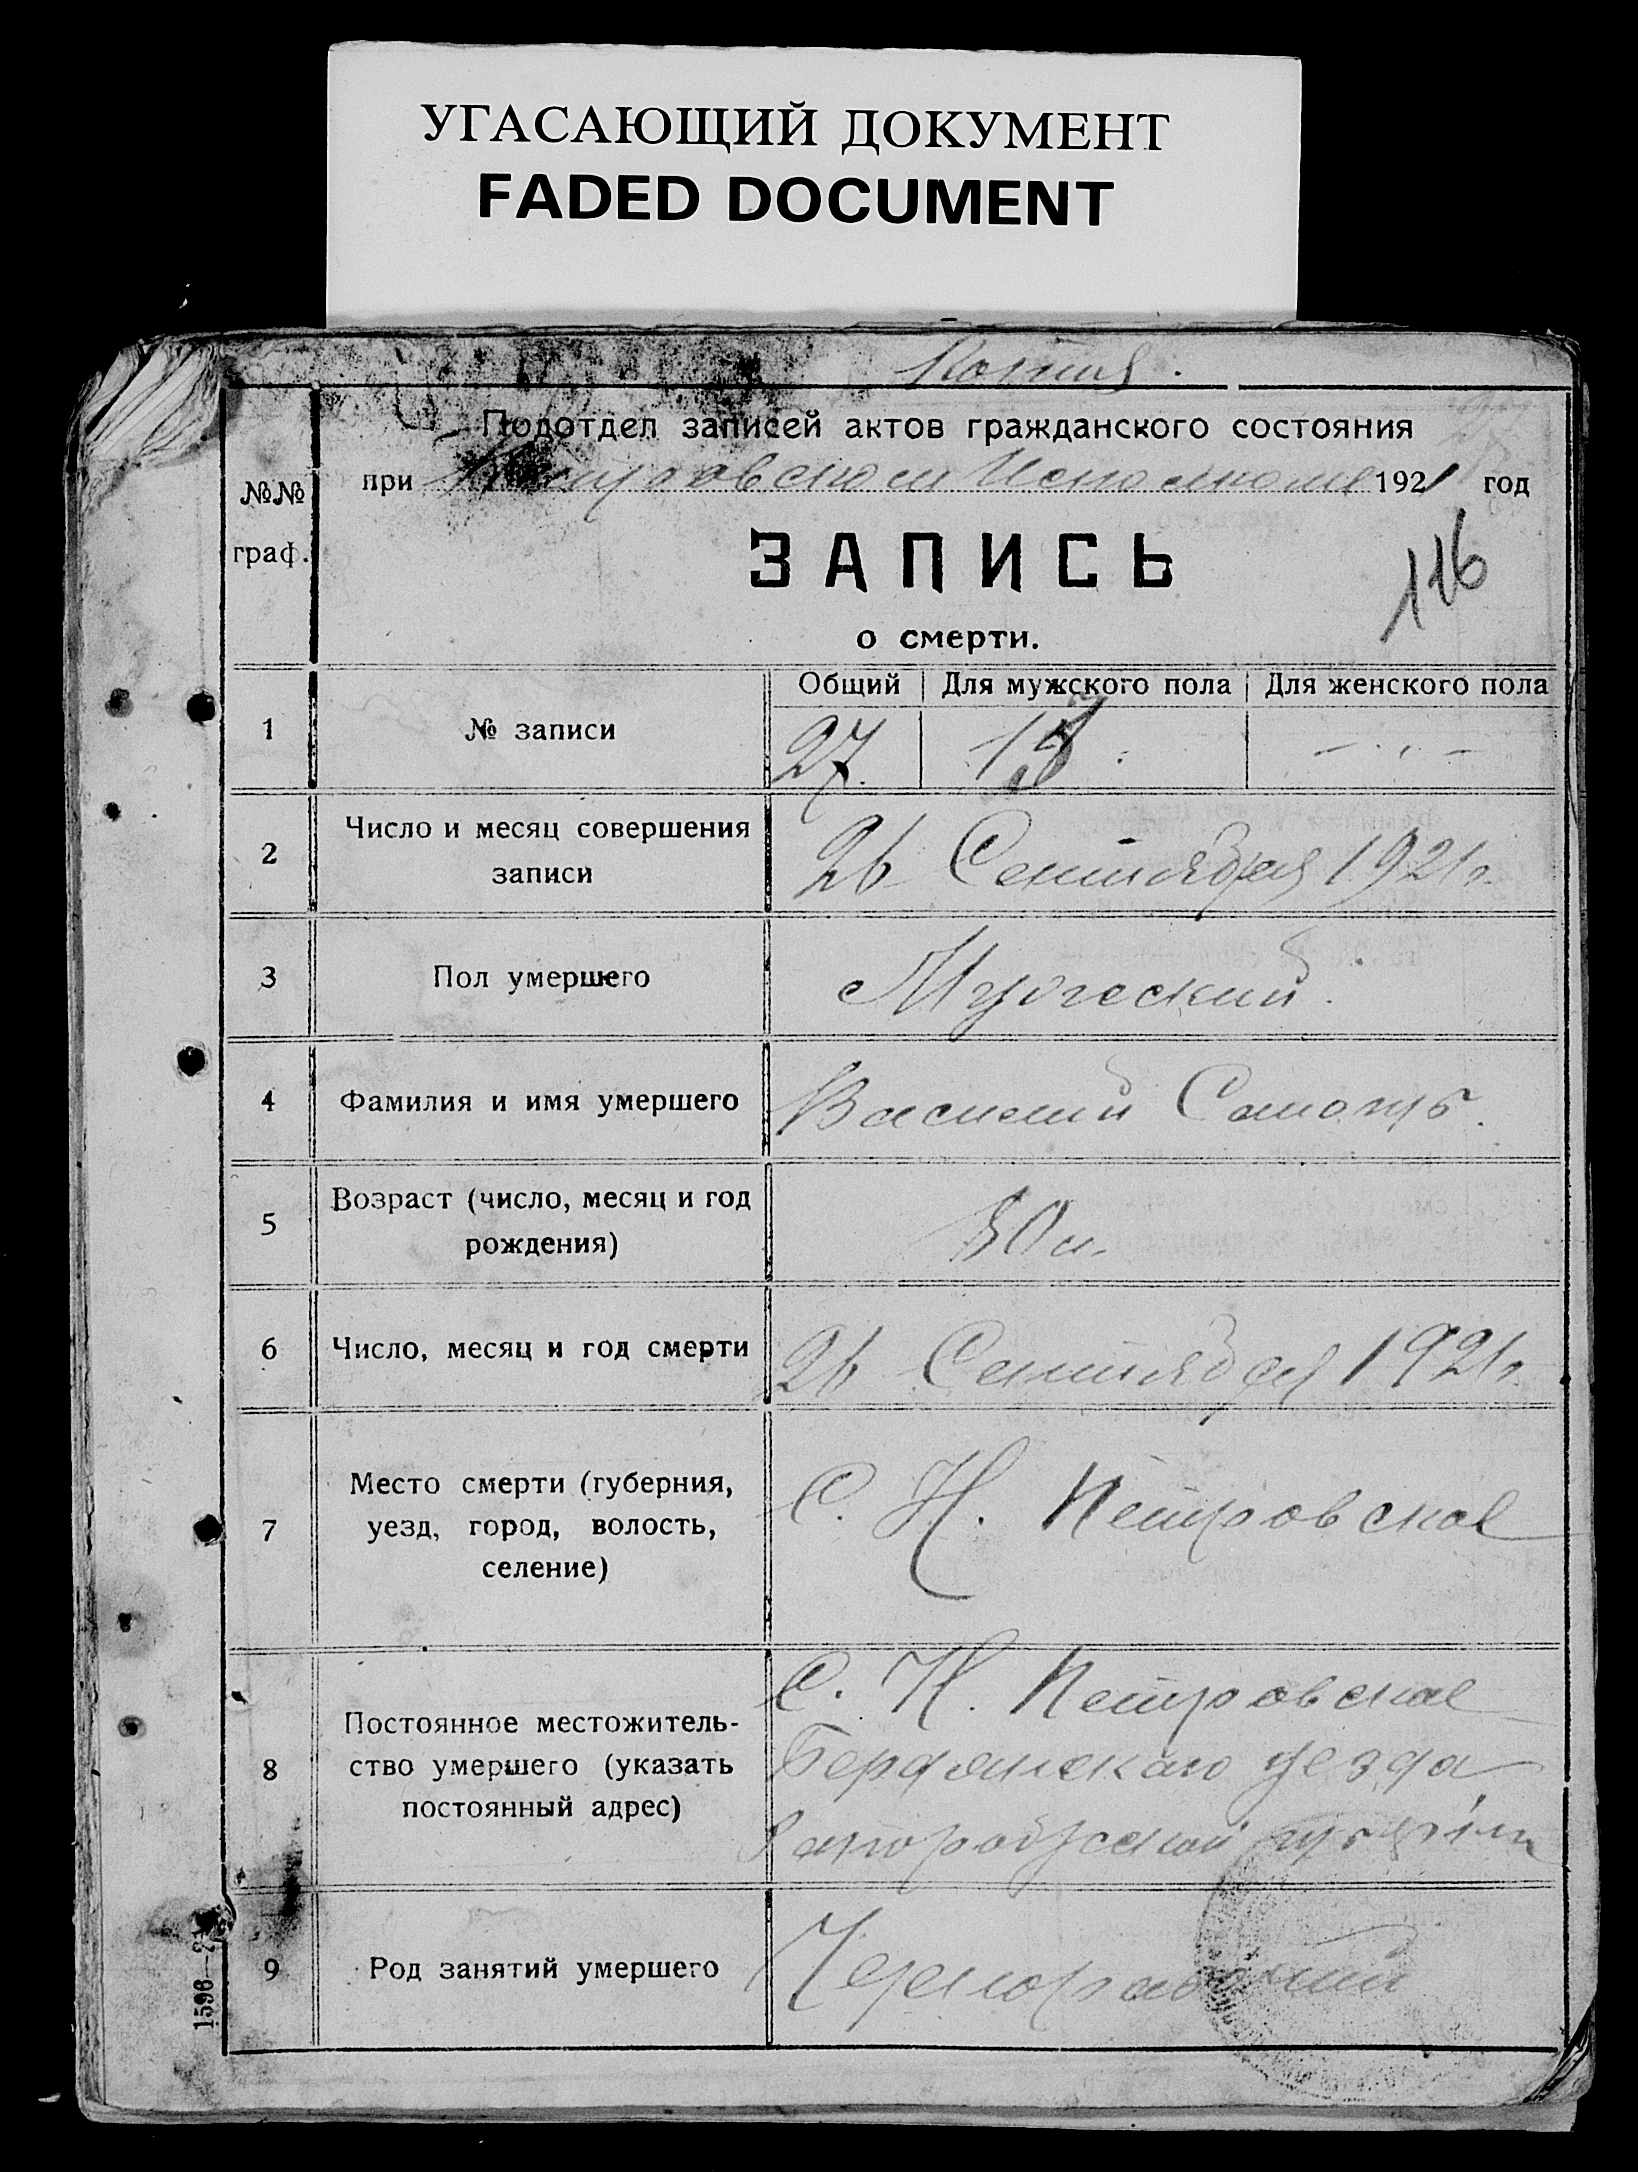 УГАСАЮЩИЙ ДОКУМЕНТ
FADED DOCUMENT
Копия.
Подотдел записей актов гражданского состояния
при Петровском Исполкоме 1921 год
№№ граф.
ЗАПИСЬ
116
о смерти.
Общий Для мужского пола Для женского пола
1 № записи 27.
2 Число и месяц совершения
записи 26 Сентября 1921 г.
3 Пол умершего Мужеский.
4 Фамилия и имя умершего Василий
5 Возраст (число, месяц и год
рождения)
6 Число, месяц и год смерти 26 Сентября 1921 г.
7 Место смерти (губерния,
уезд, город, волость,
селение)
С. Н. Петровское
8 Постоянное местожитель-
ство умершего (указать
постоянный адрес)
С. Н. Петровское
Бердянскаго уезда
Запорожской губернии
9 Род занятий умершего Чернорабочий
1596—21